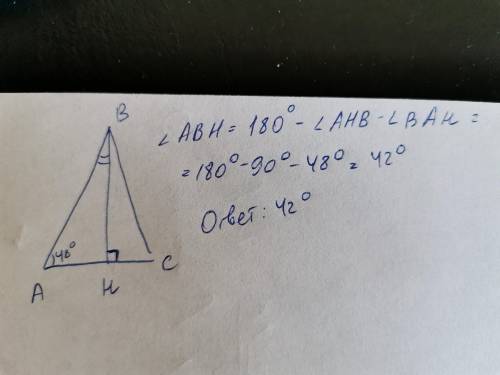 B
∠ABH = 180° - ∠AHB - ∠BAH =
= 180° - 90° - 48° = 42°
Ответ: 42°
48°
A
H
C